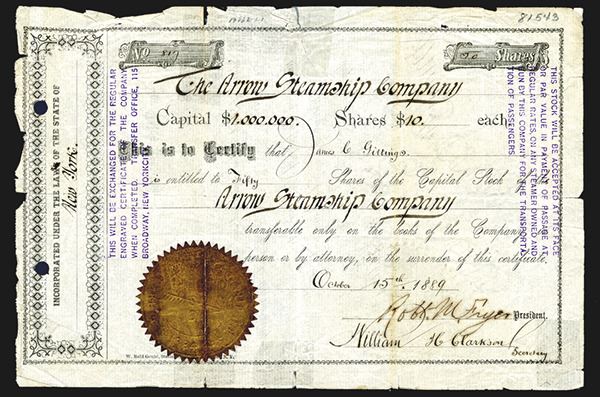 81543
No 819
50 Shares
The Arrow Steamship Company
Capital $1,000,000. Shares $10. each
This is to Certify that James C Gittings
is entitled to Fifty Shares of the Capital Stock
Arrow Steamship Company
transferable only on the books of the Company
person or by attorney, on the surrender of this certificate.
October 15th 1889
Robt. M Fryer President.
William H Clarkson
Secretary
INCORPORATED UNDER THE LAWS OF THE STATE OF
New York.
THIS WILL BE EXCHANGED FOR THE REGULAR
ENGRAVED CERTIFICATE OF THE COMPANY
WHEN COMPLETED. TRANSFER OFFICE, 115
BROADWAY, NEW YORK CITY.
THIS STOCK WILL BE ACCEPTED AT ITS FACE
OR PAR VALUE IN PAYMENT OF PASSAGE AT
REGULAR RATES ON ANY STEAMER OWNED AND
RUN BY THIS COMPANY FOR THE TRANSPORTA
TION OF PASSENGERS